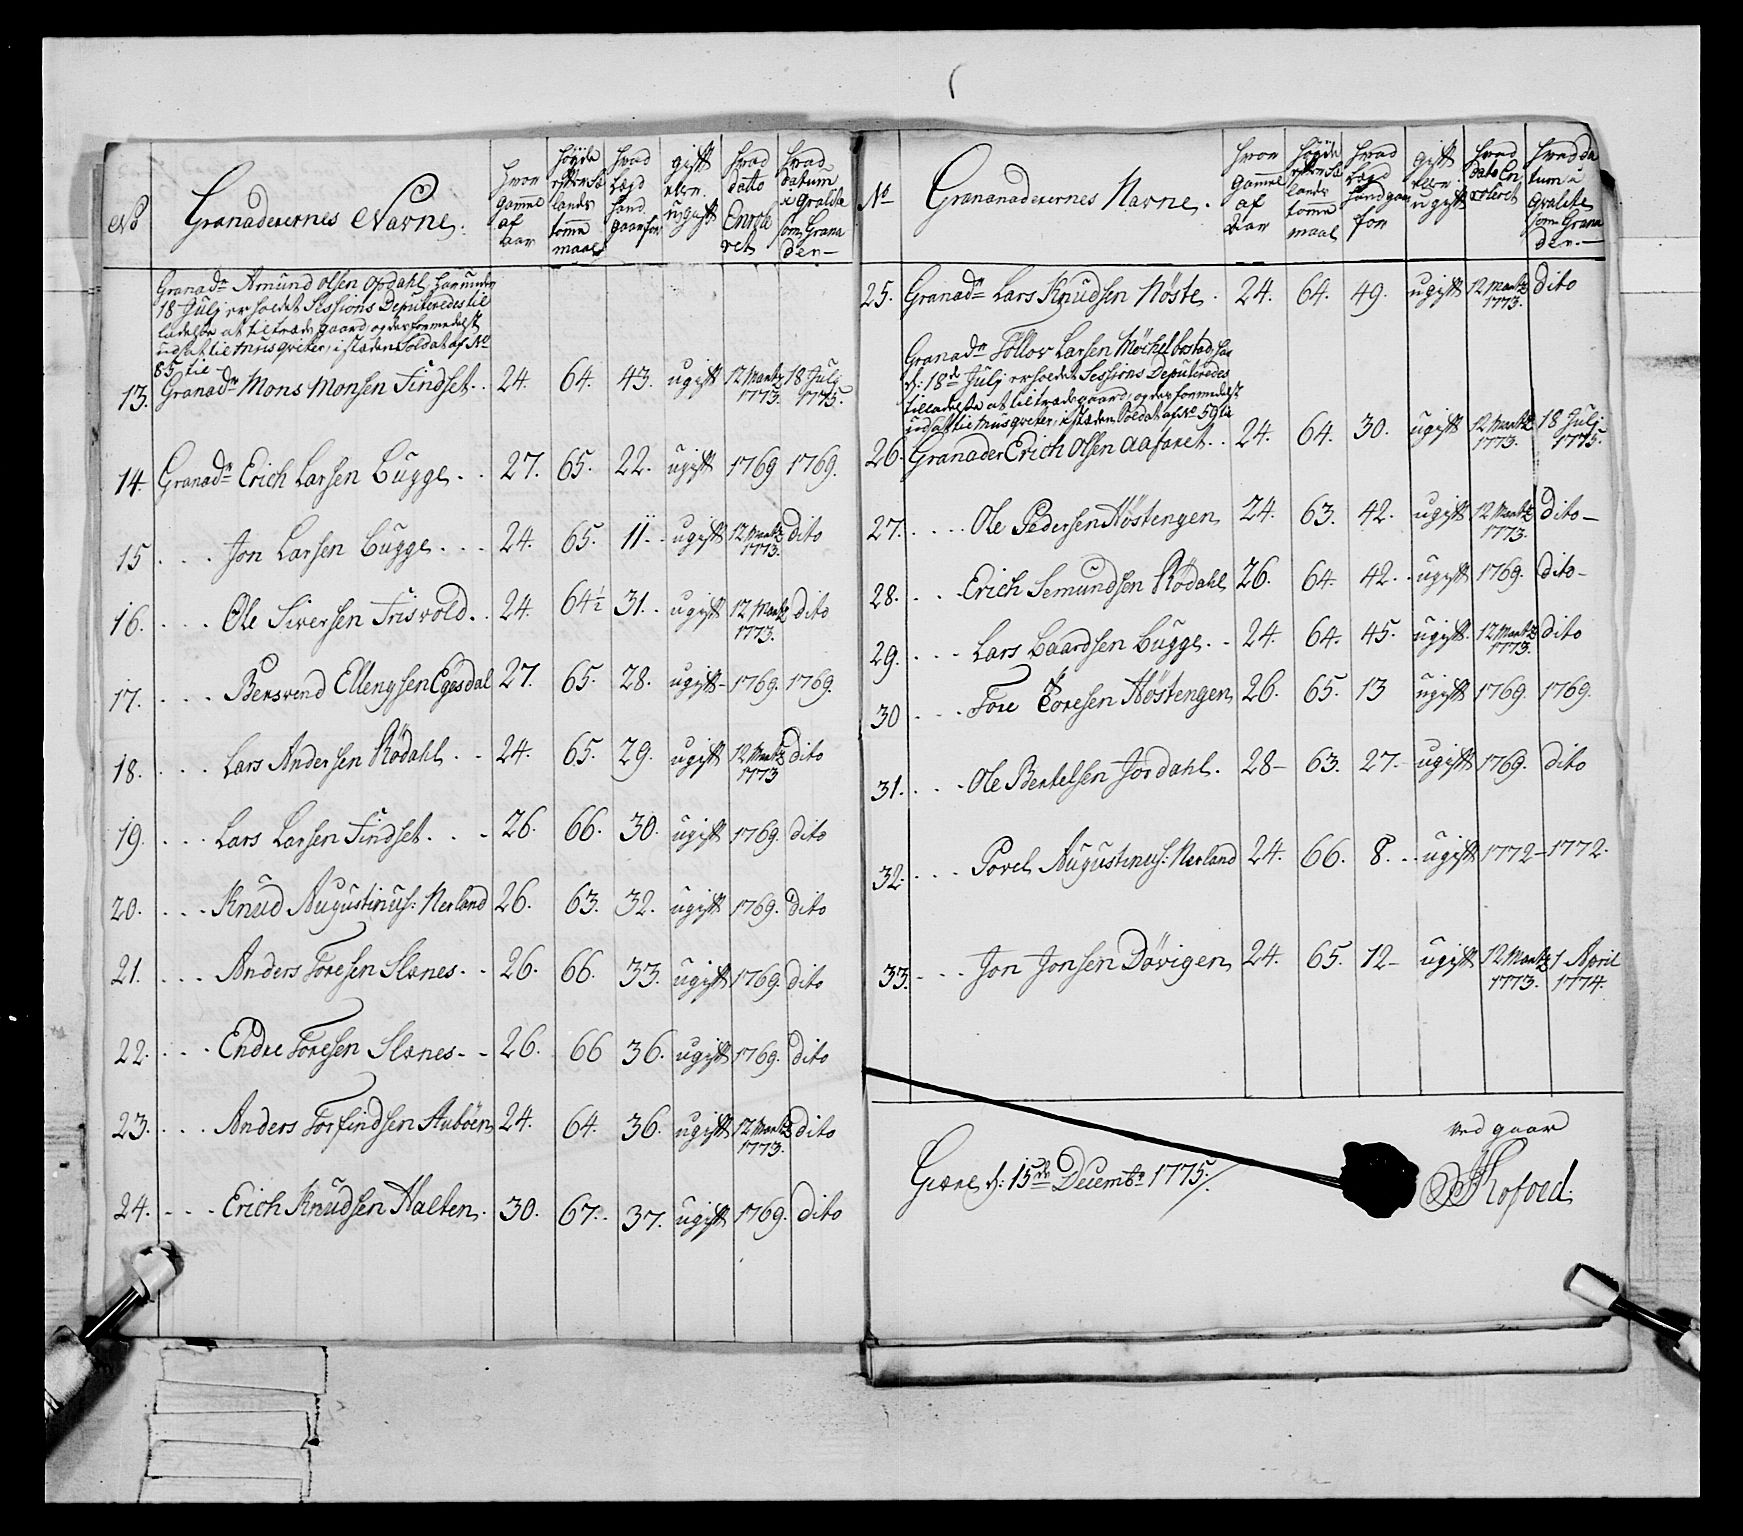 No
Granaderernes Navne.
Hvor gamle af Aar
Höyde efter Sælands tomme maal
Hvad Lægd hand gaar for
gift eller ugift
Hvad datto Enrolleret
Hvad datum
som Granader
Granadr Amund Olsen Opdahl, har under
18 Julj erholdet Sessions Deputeredes til
ladelse at tiltræde gaard og derformedelst
udsat til Musqveter, i stæden Soldat af No
85, til
13. Granadr Mons Monsen Findset. 24. 64. 43. ugift 12 Martz 1773. 18 Julj 1775.
14. Granadr Erich Larsen Bugge. 27. 65. 22. ugift 1769 1769.
15 Jon Larsen Bugge. 24. 65. 11. ugift 12 Martz 1773. dito
16. Ole Siversen Trisvold. 24. 64½ 31. ugift 12 Martz 1773. dito
17. Bersvend Ellengsen Egesdal 27. 65. 28. ugift 1769. 1769.
18. Lars Andersen Rödahl. 24. 65. 29. ugift 12 Martz 1773 dito
19. Lars Larsen Findset. 26. 66. 30. ugift 1769. dito
20. Knud Augustinus: Nerland 26. 63. 32. ugift 1769. dito
21. Anders Toresen Slenes. 26. 66. 33. ugift 1769. dito
22. Endre Toresen Slenes. 26. 66 36. ugift 1769. dito
23. Anders Torfindsen Stuböen 24. 64. 36. ugift 12 Martz 1773. dito
24. Erich Knudsen Halten. 30. 67. 37. ugift 1769. dito
No
Grananaderernes Navne.
Hvor Gamle af Aar
Höyde efter Sælands tomme maal
Hvad Lægd hand gaar for
gift eller ugift
Hvad dato Enrolleret
Hvad datum
som Granader.
25. Granadr Lars Knudsen Nöste. 24. 64. 49. ugift 12 Martz 1773. dito
Granadr Tollov Larsen Möckelbostad, har
d: 18de Julj erholdet Sessions Deputeredes
tilladelse at tiltræde gaard, og derformedelst
udsat til Musqveter, i stæden Soldat af No 59 til
26. Granader Erich Olsen Aafaret. 24. 64. 30. ugift 12 Martz 1773. 18 Julj 1775.
27. Ole Pedersen Höstengen 24. 63. 42. ugift 12 Martz 1773. dito
28. Erich Semundsen Rödahl 26. 64. 42. ugift 1769. dito
29. Lars Baardsen Bugge. 24. 64. 45. ugift. 12 Martz 1773. dito
30 Tore Toresen Höstengen 26. 65. 13 ugift 1769. 1769.
31. Ole Bertelsen Jordahl. 28 63. 27. ugift 1769. dito
32. Povel Augustinus: Nerland 24. 66. 8. ugift 1772 1772.
33. Jon Jonsen Dövigen 24. 65. 12 ugift 12 Martz 1773. 1 April 1774.
d: 15de Decembr 1775.
ved gaar
Kofoed.